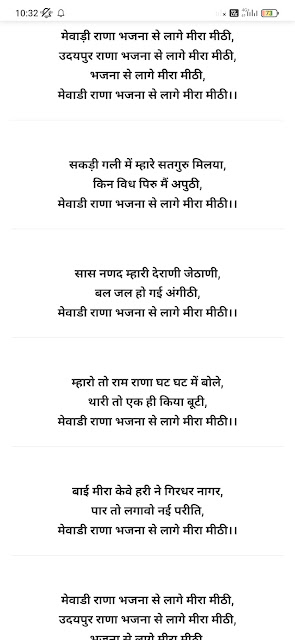 10:32
73
मेवाड़ी राणा भजना से लागे मीरा मीठी,
उदयपुर राणा भजना से लागे मीरा मीठी,
भजना से लागे मीरा मीठी,
मेवाडी राणा भजना से लागे मीरा मीठी।।
सकड़ी गली में म्हारे सतगुरु मिलया,
किन विध पिरु मैं अपुठी,
मेवाडी राणा भजना से लागे मीरा मीठी।।
सास नणद म्हारी देराणी जेठाणी,
बल जल हो गई अंगीठी,
मेवाडी राणा भजना से लागे मीरा मीठी।।
म्हारो तो राम राणा घट घट में बोले,
थारी तो एक ही किया बूटी,
मेवाडी राणा भजना से लागे मीरा मीठी।।
बाई मीरा केवे हरी ने गिरधर नागर,
पार तो लगावो नई परीति,
मेवाडी राणा भजना से लागे मीरा मीठी।।
मेवाडी राणा भजना से लागे मीरा मीठी,
उदयपुर राणा भजना से लागे मीरा मीठी,
भजना से लागे मीरा मीठी